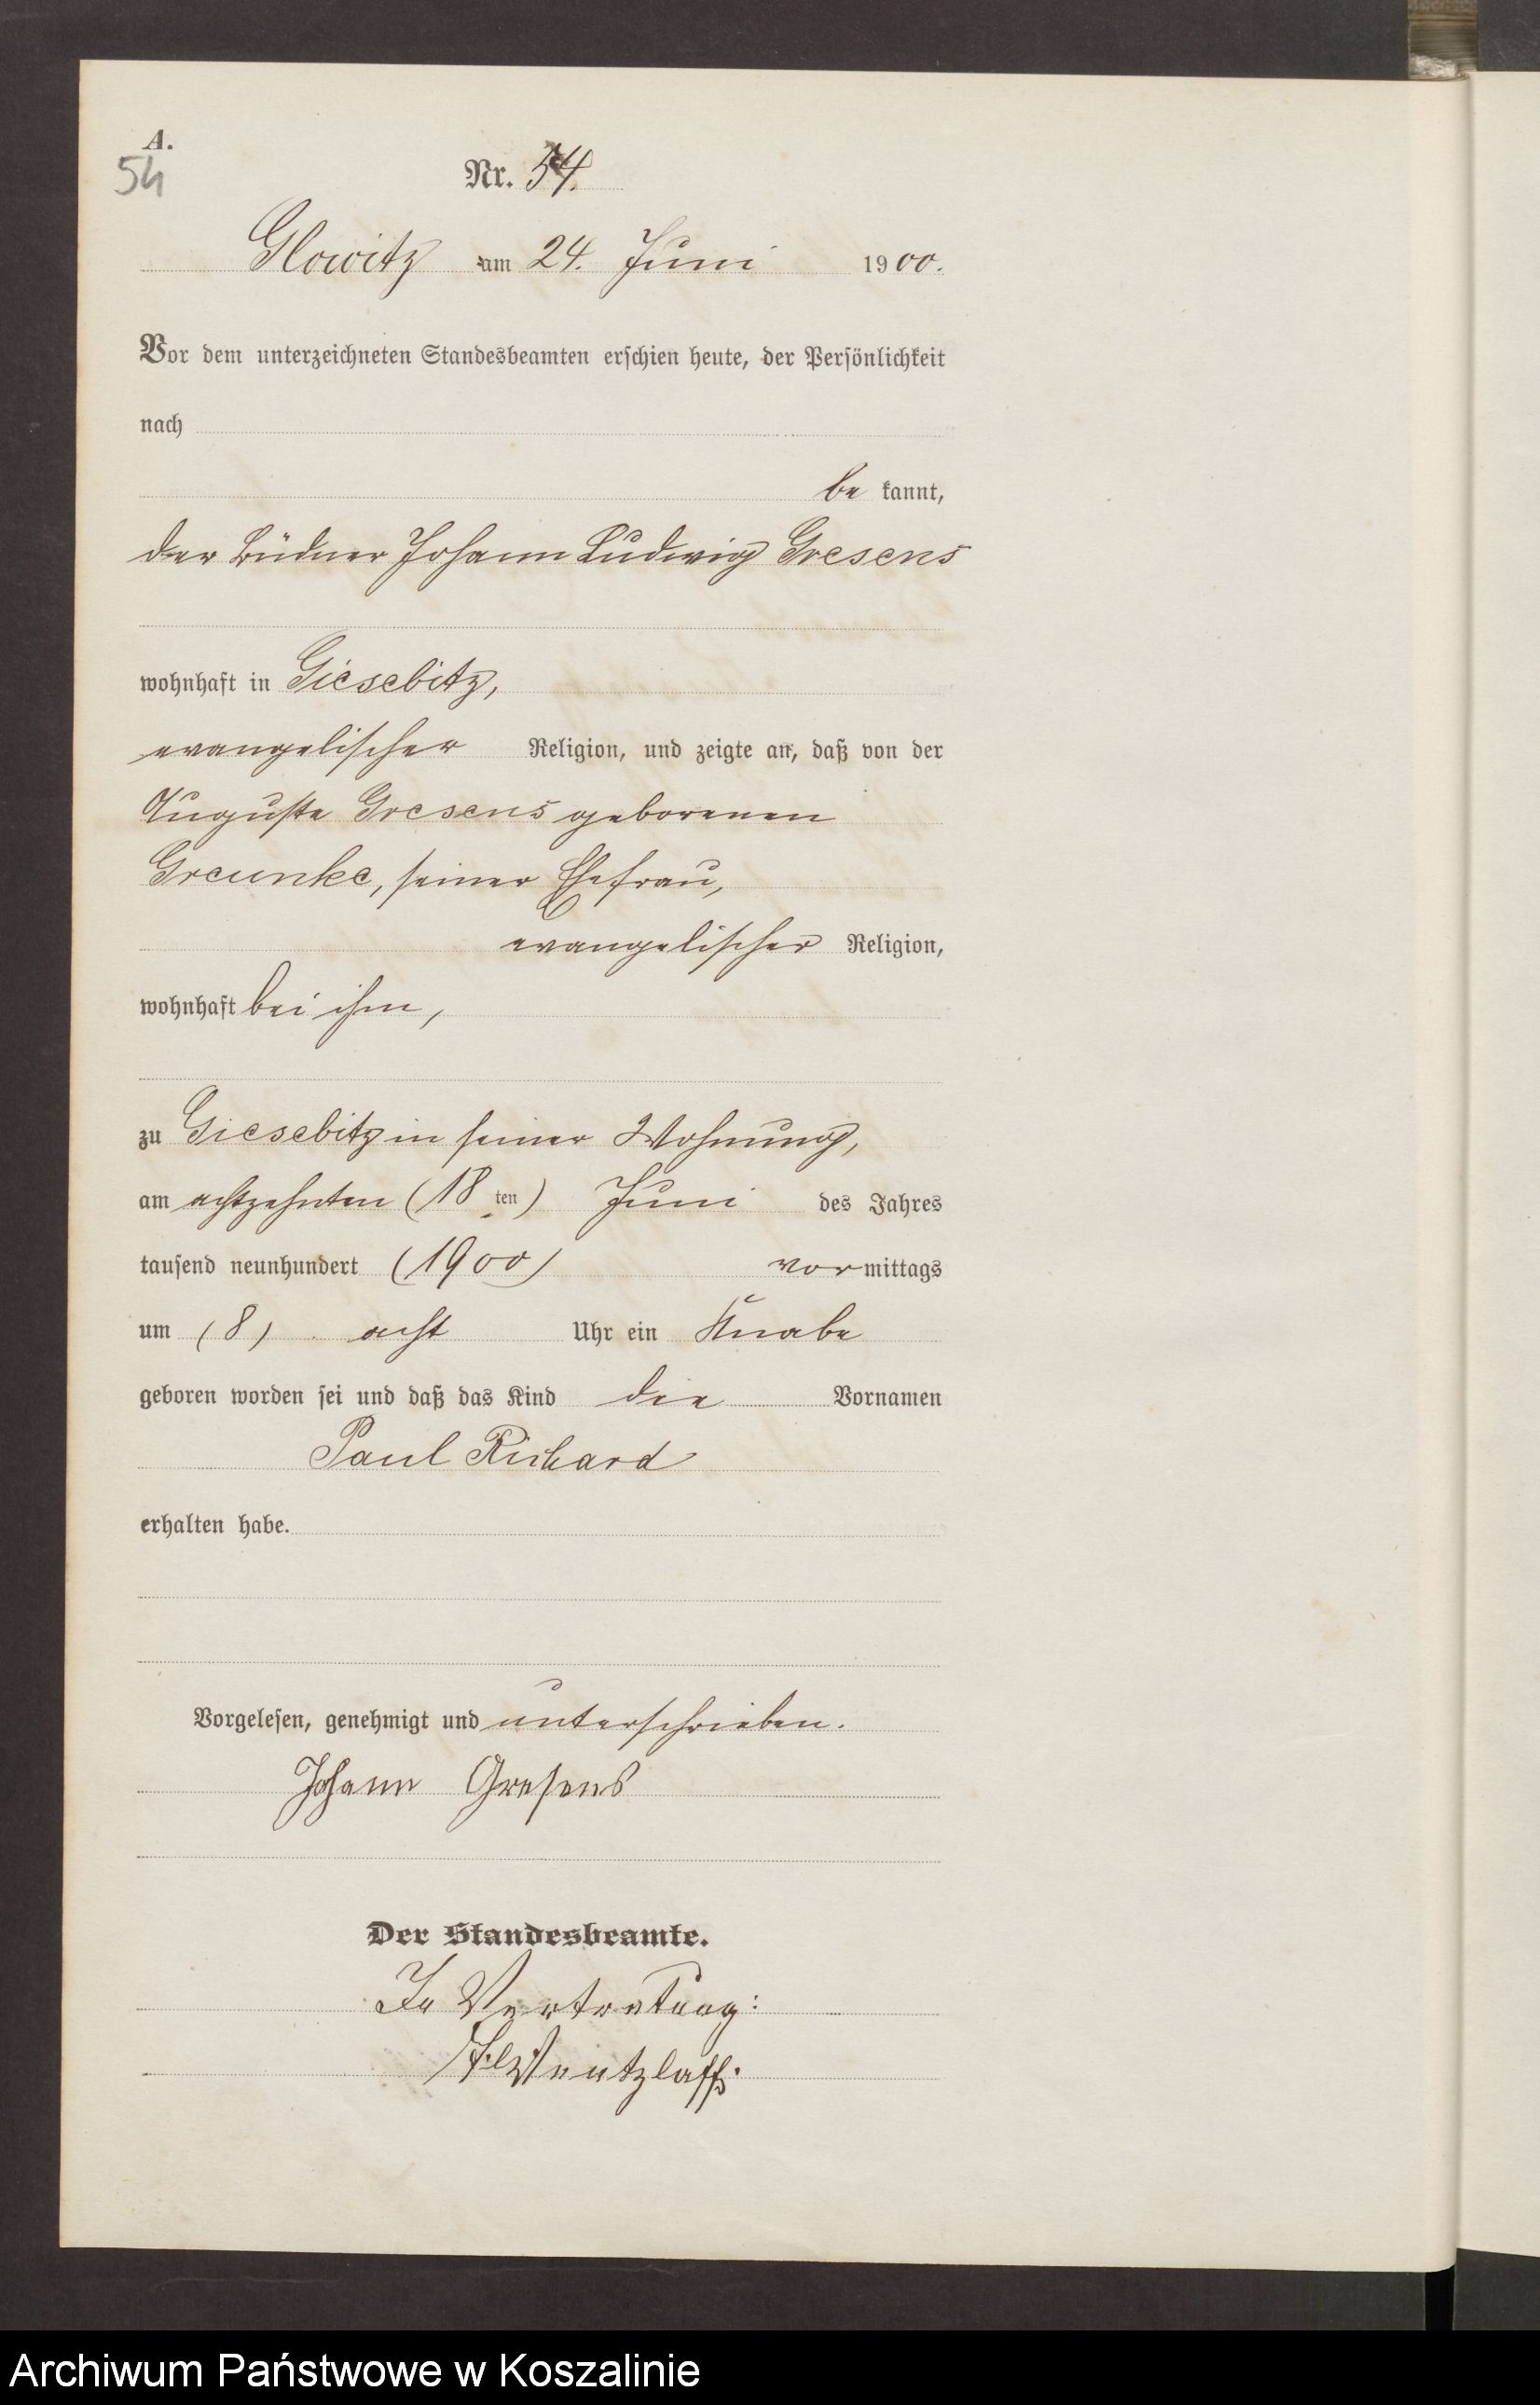 A.
54
Nr. 54.
Glowitz am 24. Juni 1900.
Vor dem unterzeichneten Standesbeamten erschien heute, der Persönlichkeit
nach
be kannt,
der Büdner Johann Ludwig Gresens
wohnhaft in Giesebitz,
evangelischer Religion, und zeigte an, daß von der
Auguste Gresens geborenen
Greunke, seiner Ehefrau,
evangelischer Religion,
wohnhaft bei ihm,
zu Giesebitz in seiner Wohnung,
am achtzehnten (18 ten) Juni des Jahres
tausend neunhundert (1900) vormittags
um (8) acht Uhr ein Knabe
geboren worden sei und daß das Kind die Vornamen
Paul Richard
erhalten habe.
Vorgelesen, genehmigt und unterschrieben.
Johann Gresens
Der Standesbeamte.
In Vertretung:
Wentzlaff.
Archiwum Państwowe w Koszalinie